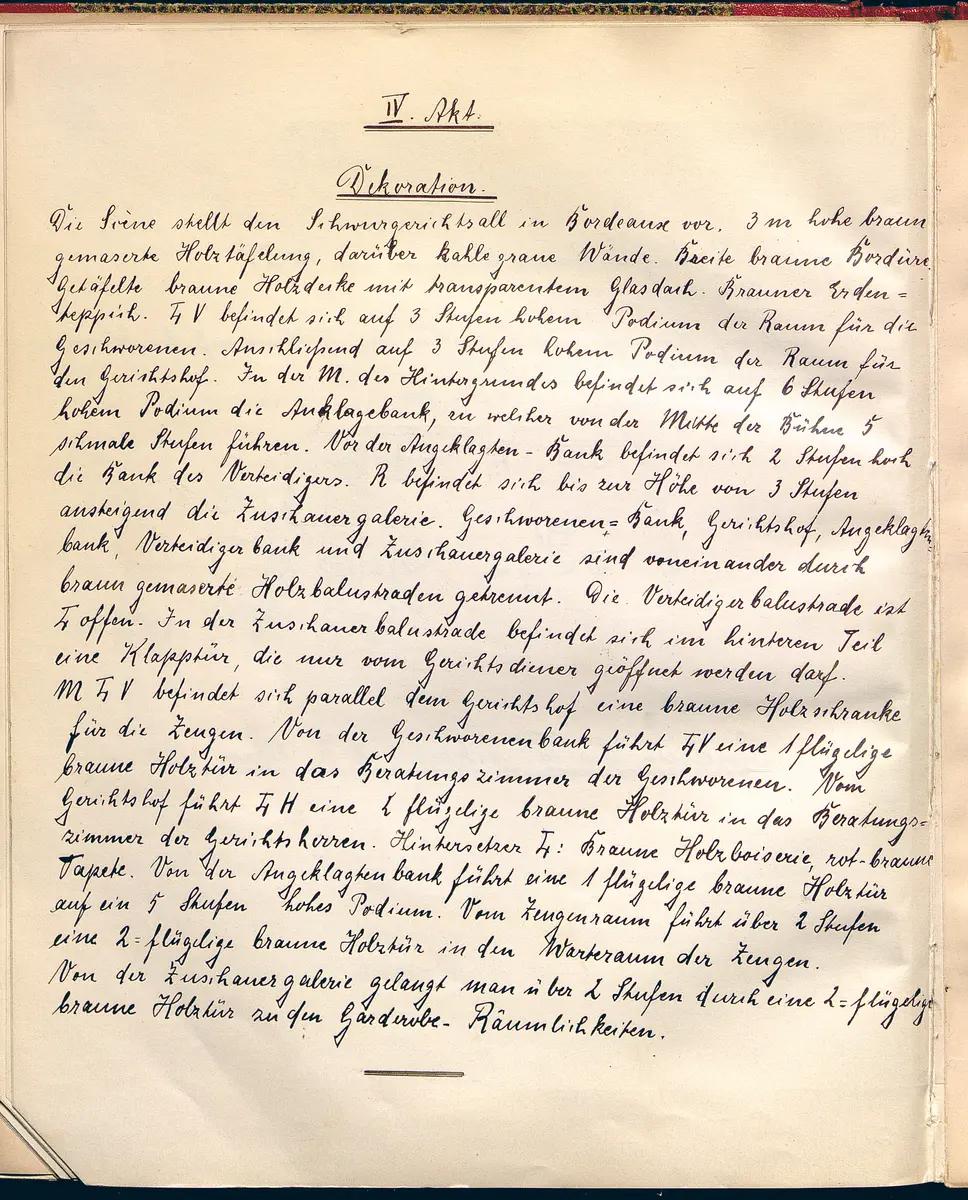 IV. Akt.
Dekoration.
Die Scene stellt den Schwurgerichtsall in Bordeaux vor. 3 m hohe braun
gemaserte Holztäfelung, darüber kahle graue Wände. Breite braune Bordüre.
Getäfelte braune Holzdecke mit transparentem Glasdach. Brauner Erden=
teppich. L V befindet sich auf 3 Stufen hohem Podium der Raum für die
Geschworenen. Anschließend auf 3 Stufen hohem Podium der Raum für
den Gerichtshof. In der M. des Hintergrundes befindet sich auf 6 Stufen
hohem Podium die Anklagebank, zu welcher von der Mitte der Bühne 5
schmale Stufen führen. Vor der Angeklagten-Bank befindet sich 2 Stufen hoch
die Bank des Verteidigers. R befindet sich bis zur Höhe von 3 Stufen
ansteigend die Zuschauergalerie. Geschworenen=Bank, Gerichtshof, Angeklagten=
bank, Verteidigerbank und Zuschauergalerie sind voneinander durch
braun gemaserte Holzbalustraden getrennt. Die Verteidigerbalustrade ist
L offen. In der Zuschauerbalustrade befindet sich im hinteren Teil
eine Klapptür, die nur vom Gerichtsdiener geöffnet werden darf.
M L V befindet sich parallel dem Gerichtshof eine braune Holzschranke
für die Zeugen. Von der Geschworenenbank führt L V eine 1 flügelige
braune Holztür in das Beratungszimmer der Geschworenen. Vom
Gerichtshof führt L H eine 2 flügelige braune Holztür in das Beratungs=
zimmer der Gerichtsherren. Hintersetzer L: Braune Holzboiserie, rot-braune
Tapete. Von der Angeklagtenbank führt eine 1 flügelige braune Holztür
auf ein 5 Stufen hohes Podium. Vom Zeugenraum führt über 2 Stufen
eine 2=flügelige braune Holztür in den Warteraum der Zeugen.
Von der Zuschauergalerie gelangt man über 2 Stufen durch eine 2=flügelige
braune Holztür zu den Garderobe-Räumlichkeiten.